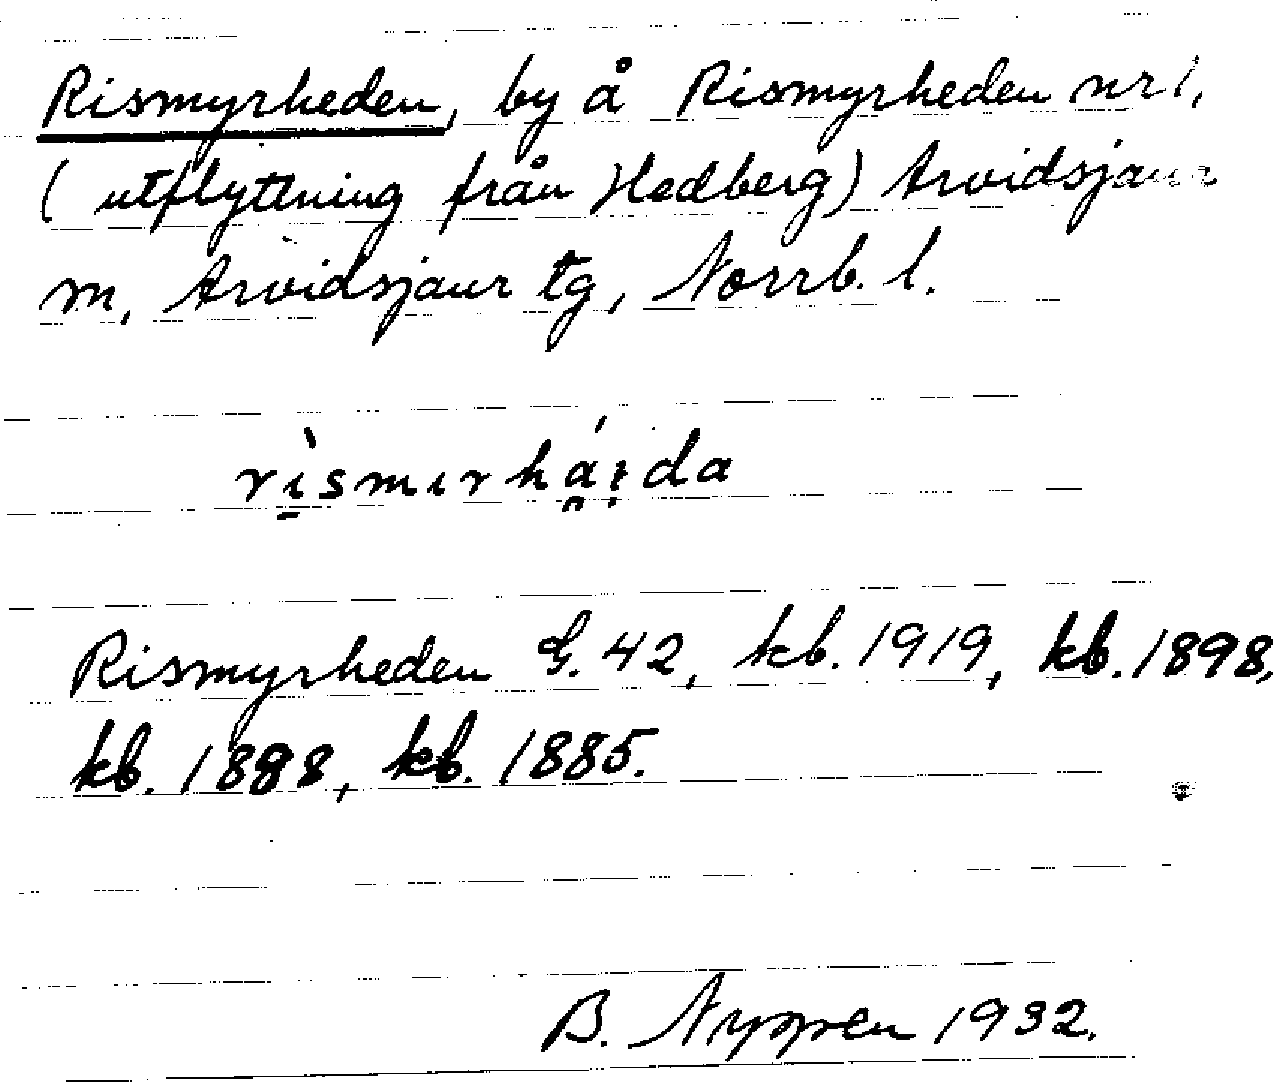 Rismyrheden, by å Rismyrheden nr 1,
(utflyttning från Hedberg) Arvidsjaur
m, Arvidsjaur tg, Norrb. l.
Rismyrheden G. 42, kb. 1919, kb. 1898,
kb. 1888, kb. 1885.
B. Nyppen 1932.